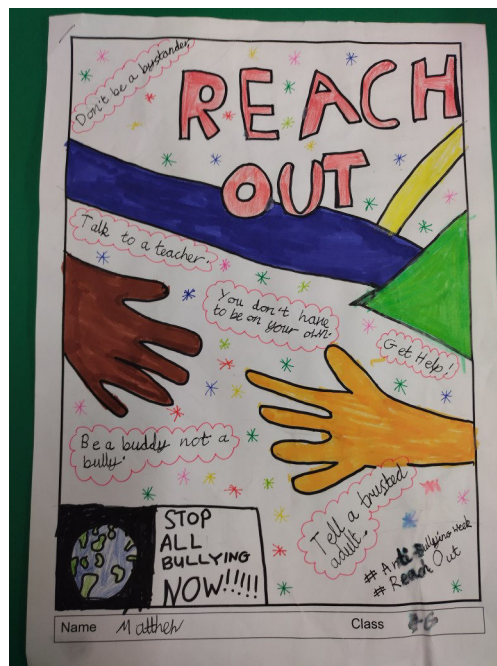 Don't be a bystander
REACH
OUT
Talk to a teacher.
You don't have
to be on your own.
Get Help!
Be a buddy not a
bully.
Tell a trusted
adult.
STOP
ALL
BULLYING
NOW!!!!!
# Anti Bullying week
# Reach Out
Name Matthew
Class